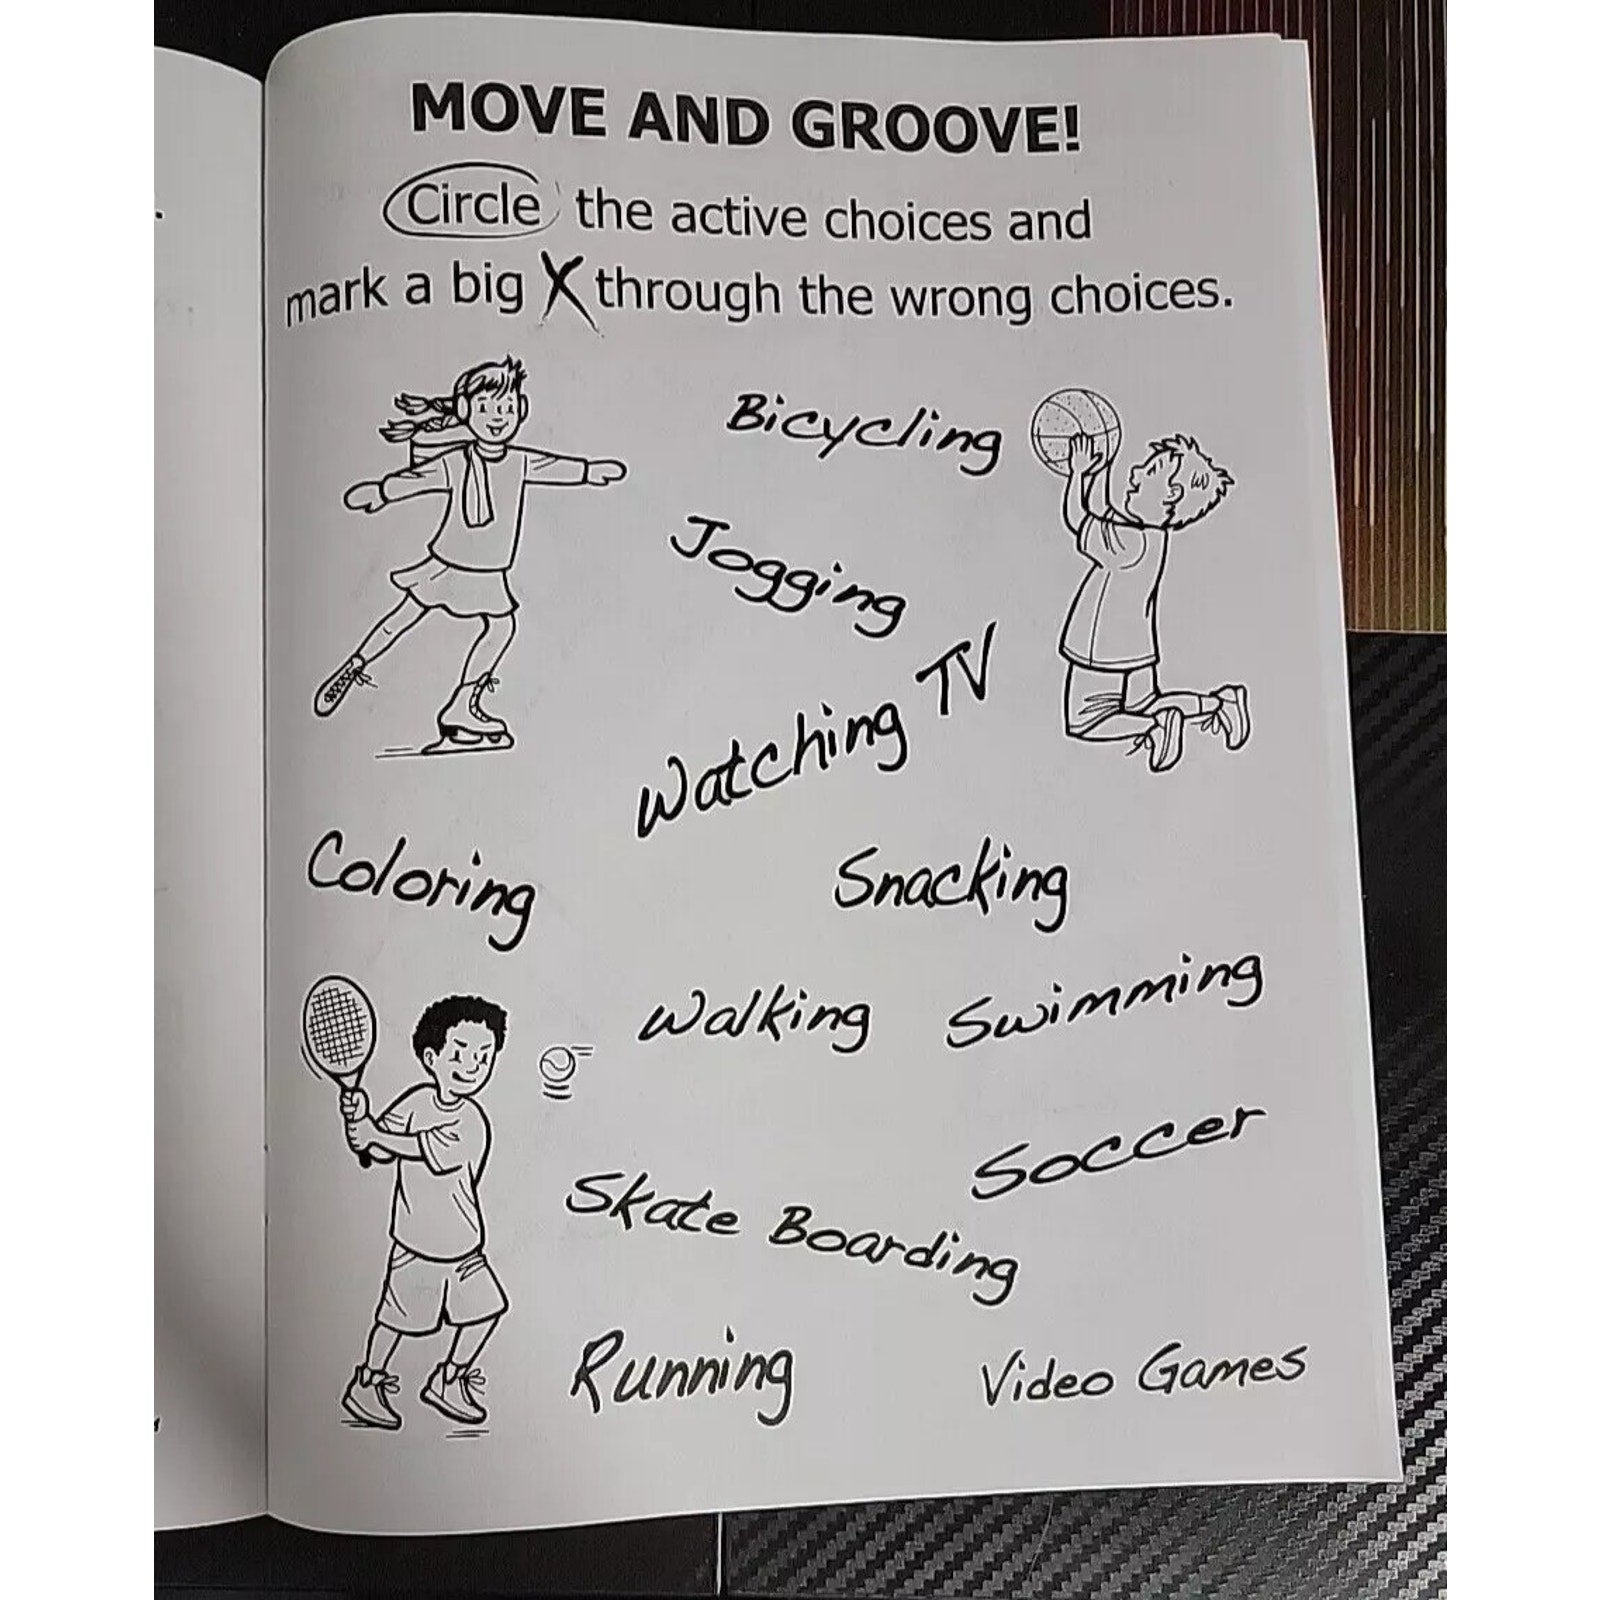 MOVE AND GROOVE!
Circle the active choices and
mark a big X through the wrong choices.
Bicycling
Jogging
Watching TV
Coloring
Snacking
Walking
Swimming
Soccer
Skate Boarding
Running
Video Games